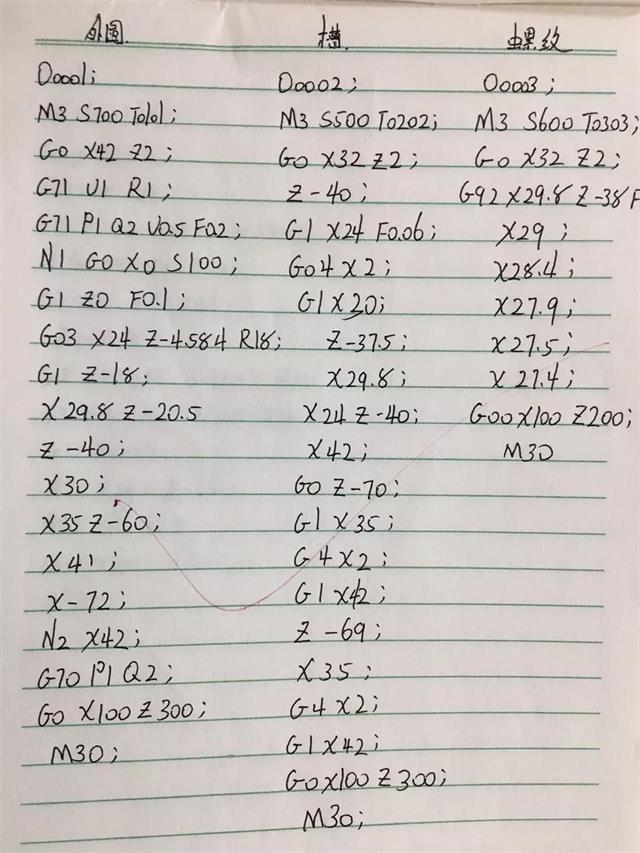 外圆
O0001;
M3 S700 T0101;
G0 X42 Z2;
G71 U1 R1;
G71 P1 Q2 U0.5 F0.2;
N1 G0 X0 S100;
G1 Z0 F0.1;
G03 X24 Z-4.584 R18;
G1 Z-18;
X29.8 Z-20.5
Z-40;
X30;
X35 Z-60;
X41;
X-72;
N2 X42;
G70 P1 Q2;
G0 X100 Z300;
M30;
槽
O0002;
M3 S500 T0202;
G0 X32 Z2;
Z-40;
G1 X24 F0.06;
G04 X2;
G1 X20;
Z-37.5;
X29.8;
X24 Z-40;
X42;
G0 Z-70;
G1 X35;
G4 X2;
G1 X42;
Z-69;
X35;
G4 X2;
G1 X42;
G0 X100 Z300;
M30;
螺纹
O0003;
M3 S600 T0303;
G0 X32 Z2;
G92 X29.8 Z-38 F
X29;
X28.4;
X27.9;
X27.5;
X27.4;
G00 X100 Z200;
M30